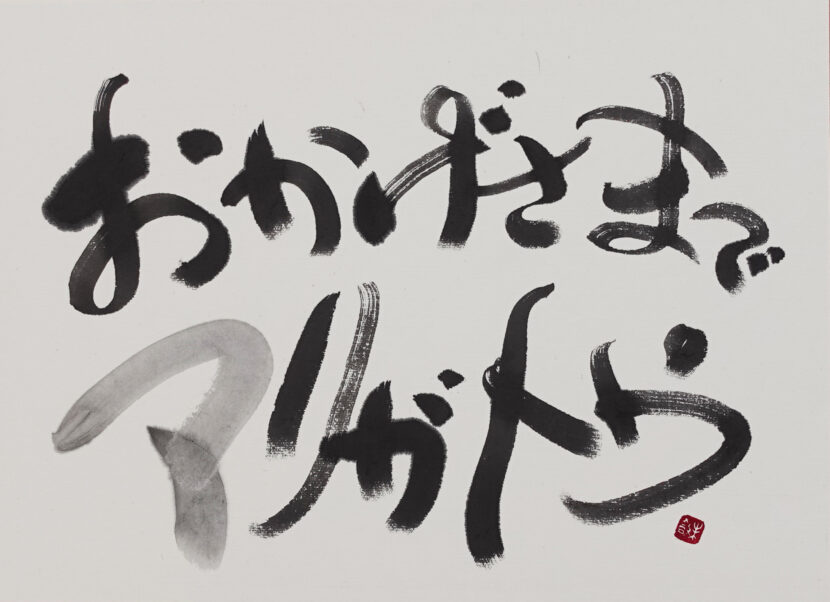 おかげさまで
アリガトウ